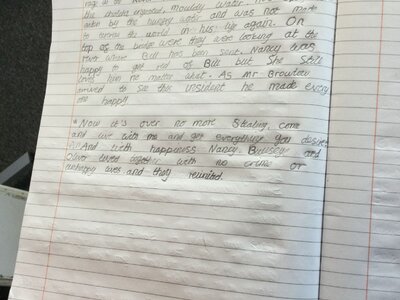 the cholera infested, mouldy water. He
eaten by the hungry water and was not made
to terrors the world in his life again. On
top of the bridge were they were looking at the
river where Bill has been sent. Nancy was
happy to get rid of Bill but She Still
loves him no matter what. As Mr Brownlow
arrived to see this insident he made every
one happy.
"Now it's over no more Stealing, come
and live with me and get everything you desire
And with happiness Nancy, and
Oliver lived together with no crime or
lives and they reunited.